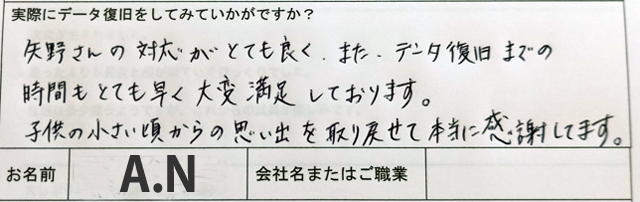 実際にデータ復旧をしてみていかがですか？
矢野さんの対応がとても良く、また、データ復旧までの
時間もとても早く大変満足しております。
子供の小さい頃からの思い出を取り戻せて本当に感謝してます。
お名前 A.N 会社名またはご職業